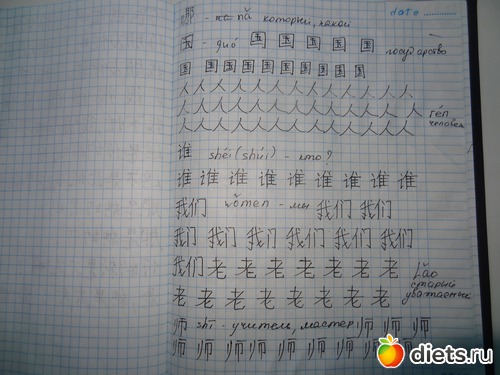 date
哪 - nǎ который, какой
国 - guó 国 国 国 国 国 государство
国 国 国 国 国 国 国 国 国 国
人 人 人 人 人 人 人 人 人 人 人 人
人 人 人 人 人 人 人 人 人 人 人 人 人 rén
人 人 人 人 人 人 人 人 人 人 人 人 человек
谁 shéi (shúi) - кто?
谁 谁 谁 谁 谁 谁 谁 谁 谁
我们 wǒmen - мы 我们 我们
我们 我们 我们 我们 我们 我们
我们 老 老 老 老 老 老 老 lǎo
老 老 老 老 老 老 老 老 старый уважаемый
师 shī - учитель, мастер 师 师 师
师 师 师 师 师 师 师 师 师
diets.ru